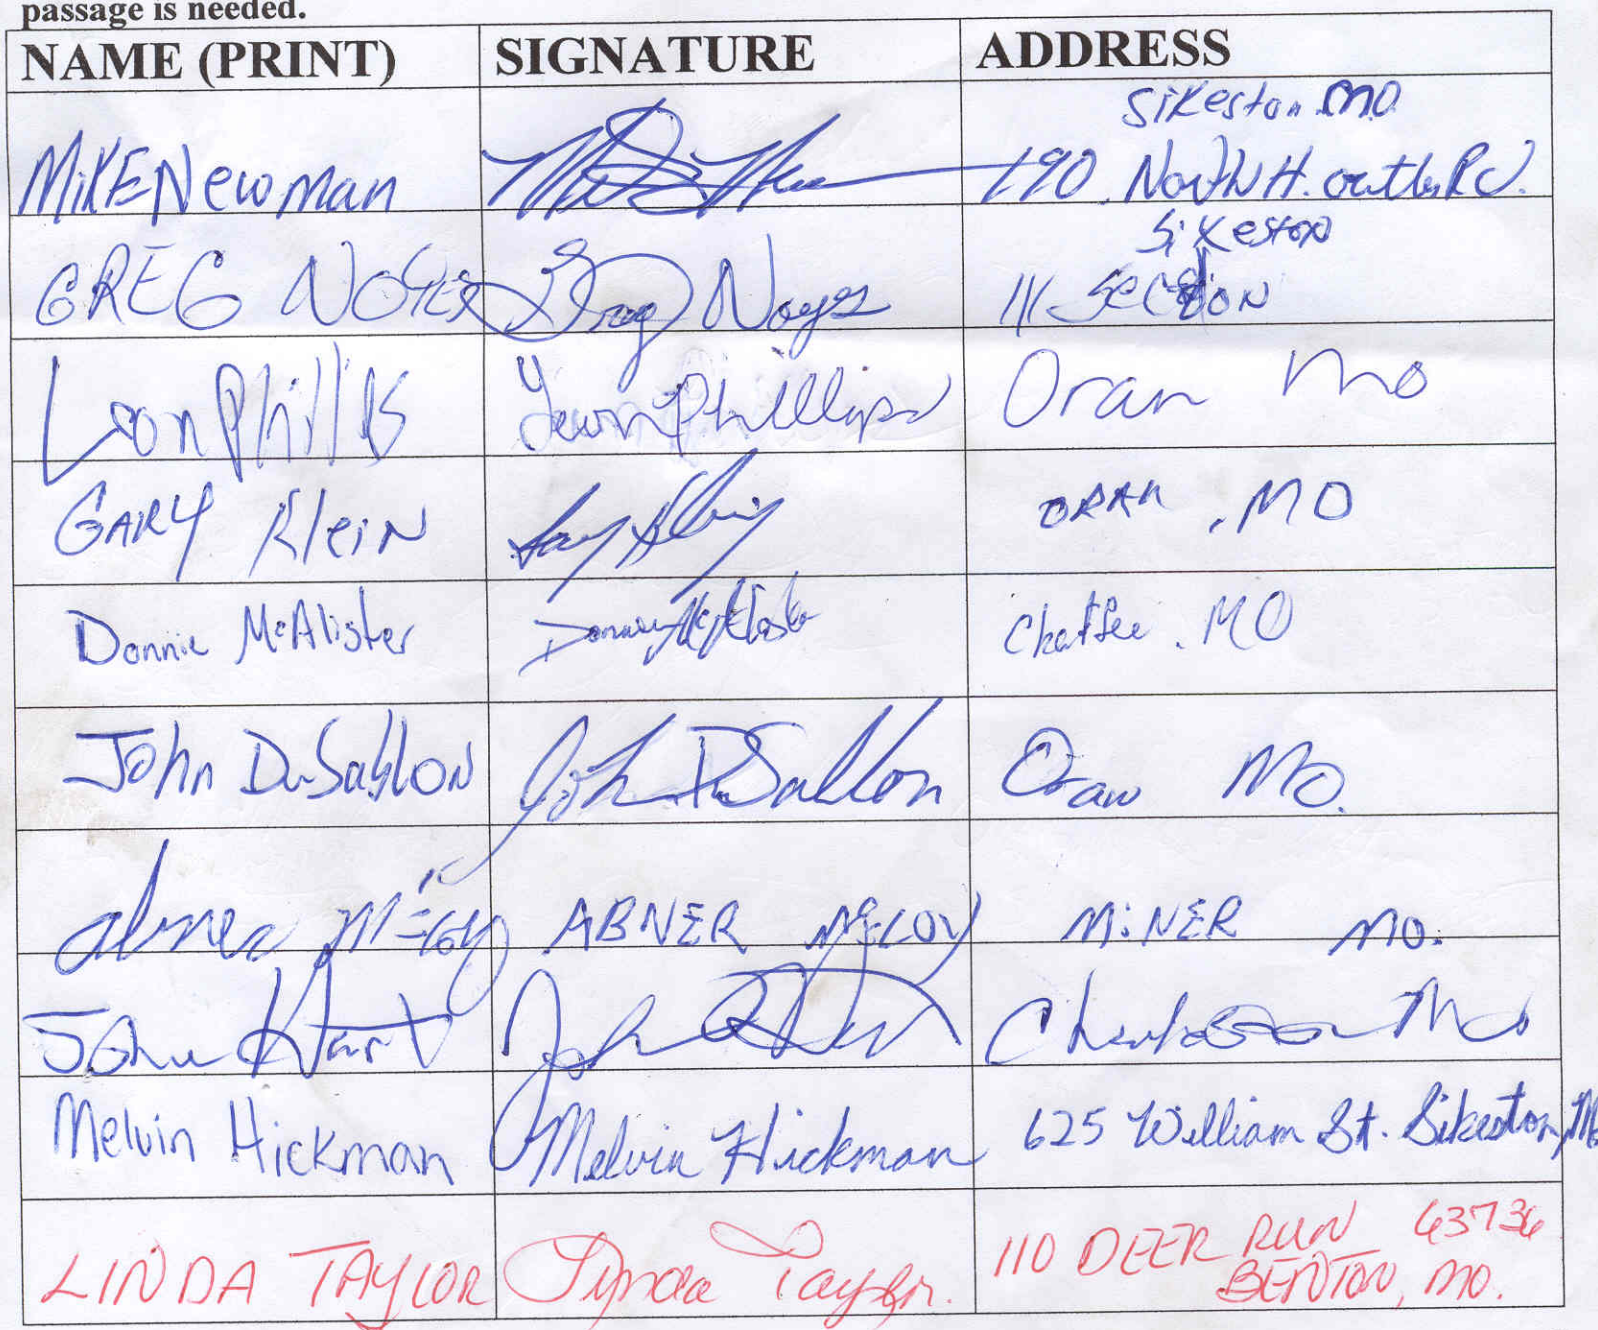 passage is needed.
NAME (PRINT) SIGNATURE ADDRESS
Sikeston MO.
MiKE Newman 190 North H. outer Rd.
Sikeston
GREG NOYES Greg Noyes 111 Section
Leon Phillips Leon Phillips Oran Mo
GARY Klein Gary Klein ORAN, MO
Donnie McAlister Donnie McAlister Chaffee, MO
John DuSablon John DuSablon Oran Mo.
Abner McCoy ABNER McCOY MiNER MO.
John Hart John Hart Mo
Melvin Hickman Melvin Hickman 625 William St. Sikeston, Mo
LINDA TAYLOR Lynda Taylor. 110 DEER RUN 63736
BENTON, MO.